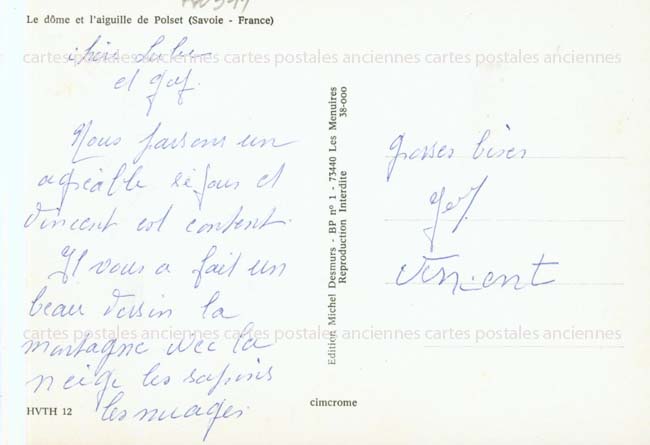 Le dôme et l'aiguille de Polset (Savoie - France)
cartes postales anciennes cartes postales anciennes cartes postales anciennes
et
Nous passons un
agréable séjour et
Vincent est content.
Il vous a fait un
beau dessin la
montagne avec la
neige les sapins
les nuages
cartes postales anciennes cartes postales anciennes cartes postales anciennes
HVTH 12
Edition Michel Desmurs - BP n° 1 - 73440 Les Menuires
38-000
Reproduction Interdite
cimcrome
grosses bises
Vincent